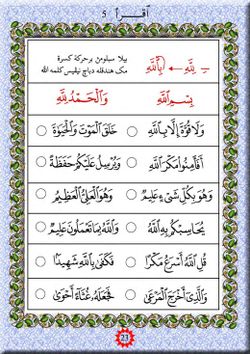 اقرأ 5
ـِ لِلّٰهِ ← بِاللّٰهِ
بيلا سبلومڽ برحركة كسرة
مک هندقله دباچ نيفيس كلمه الله
بِسْمِ اللّٰهِ وَالْحَمْدُ لِلّٰهِ
وَلَا قُوَّةَ إِلَّا بِاللّٰهِ خَلَقَ الْمَوْتَ وَالْحَيٰوةَ
أَفَأَمِنُوا مَكْرَ اللّٰهِ وَيُرْسِلُ عَلَيْكُمْ حَفَظَةً
وَهُوَ بِكُلِّ شَيْءٍ عَلِيْمٌ وَهُوَ الْعَلِيُّ الْعَظِيْمُ
يُحَاسِبْكُمْ بِهِ اللّٰهُ وَاللّٰهُ بِمَا تَعْمَلُوْنَ عَلِيْمٌ
قُلِ اللّٰهُ أَسْرَعُ مَكْرًا فَكَفٰى بِاللّٰهِ شَهِيْدًا
وَالَّذِيْ أَخْرَجَ الْمَرْعٰى فَجَعَلَهُ غُثَاءً أَحْوٰى
23